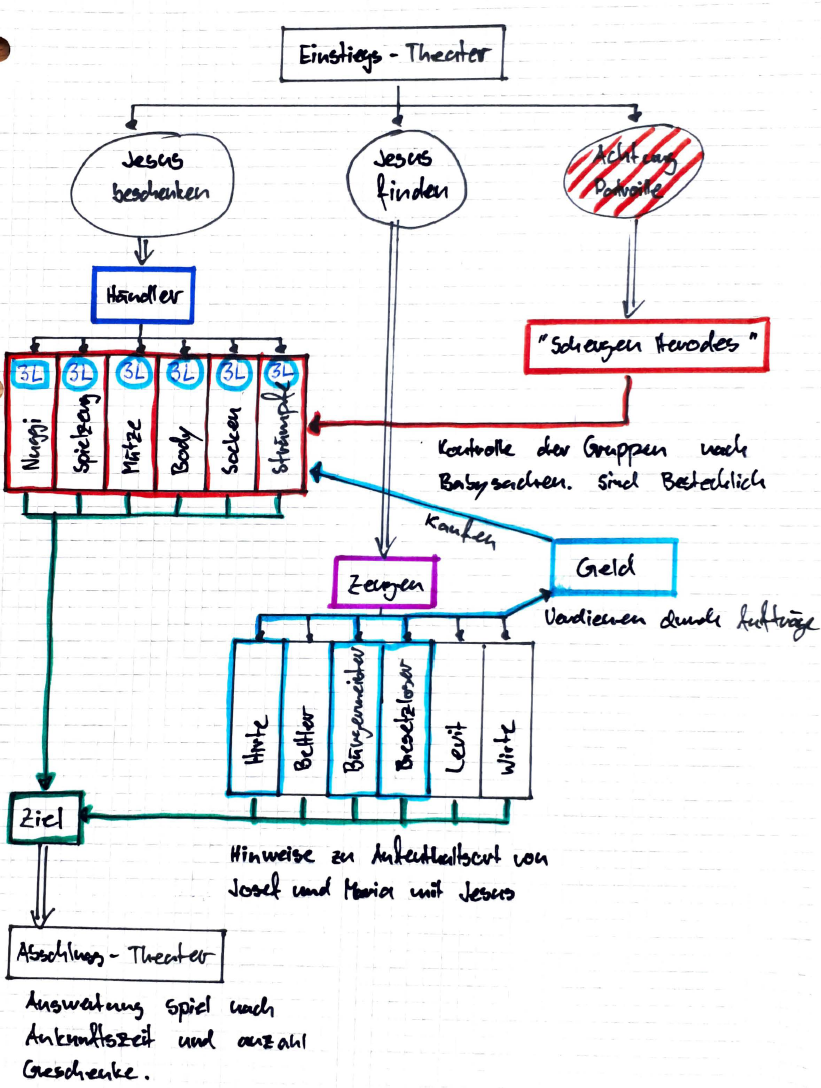 Einstiegs - Theater
Jesus
beschenken
Jesus
finden
Achtung
Patrouille
Händler
"Schergen Herodes"
3L
3L
3L
3L
3L
3L
Nuggi
Spielzeug
Mütze
Body
Socken
Strümpfe
Kontrolle der Gruppen nach
Babysachen. Sind Bestechlich
Kaufen
Geld
Zeugen
Verdienen durch Aufträge
Hirte
Bettler
Bürgermeister
Gesetzloser
Levit
Wirte
Ziel
Hinweise zu Aufenthaltsort von
Josef und Maria mit Jesus
Abschluss - Theater
Auswertung Spiel nach
Ankunftszeit und anzahl
Geschenke.